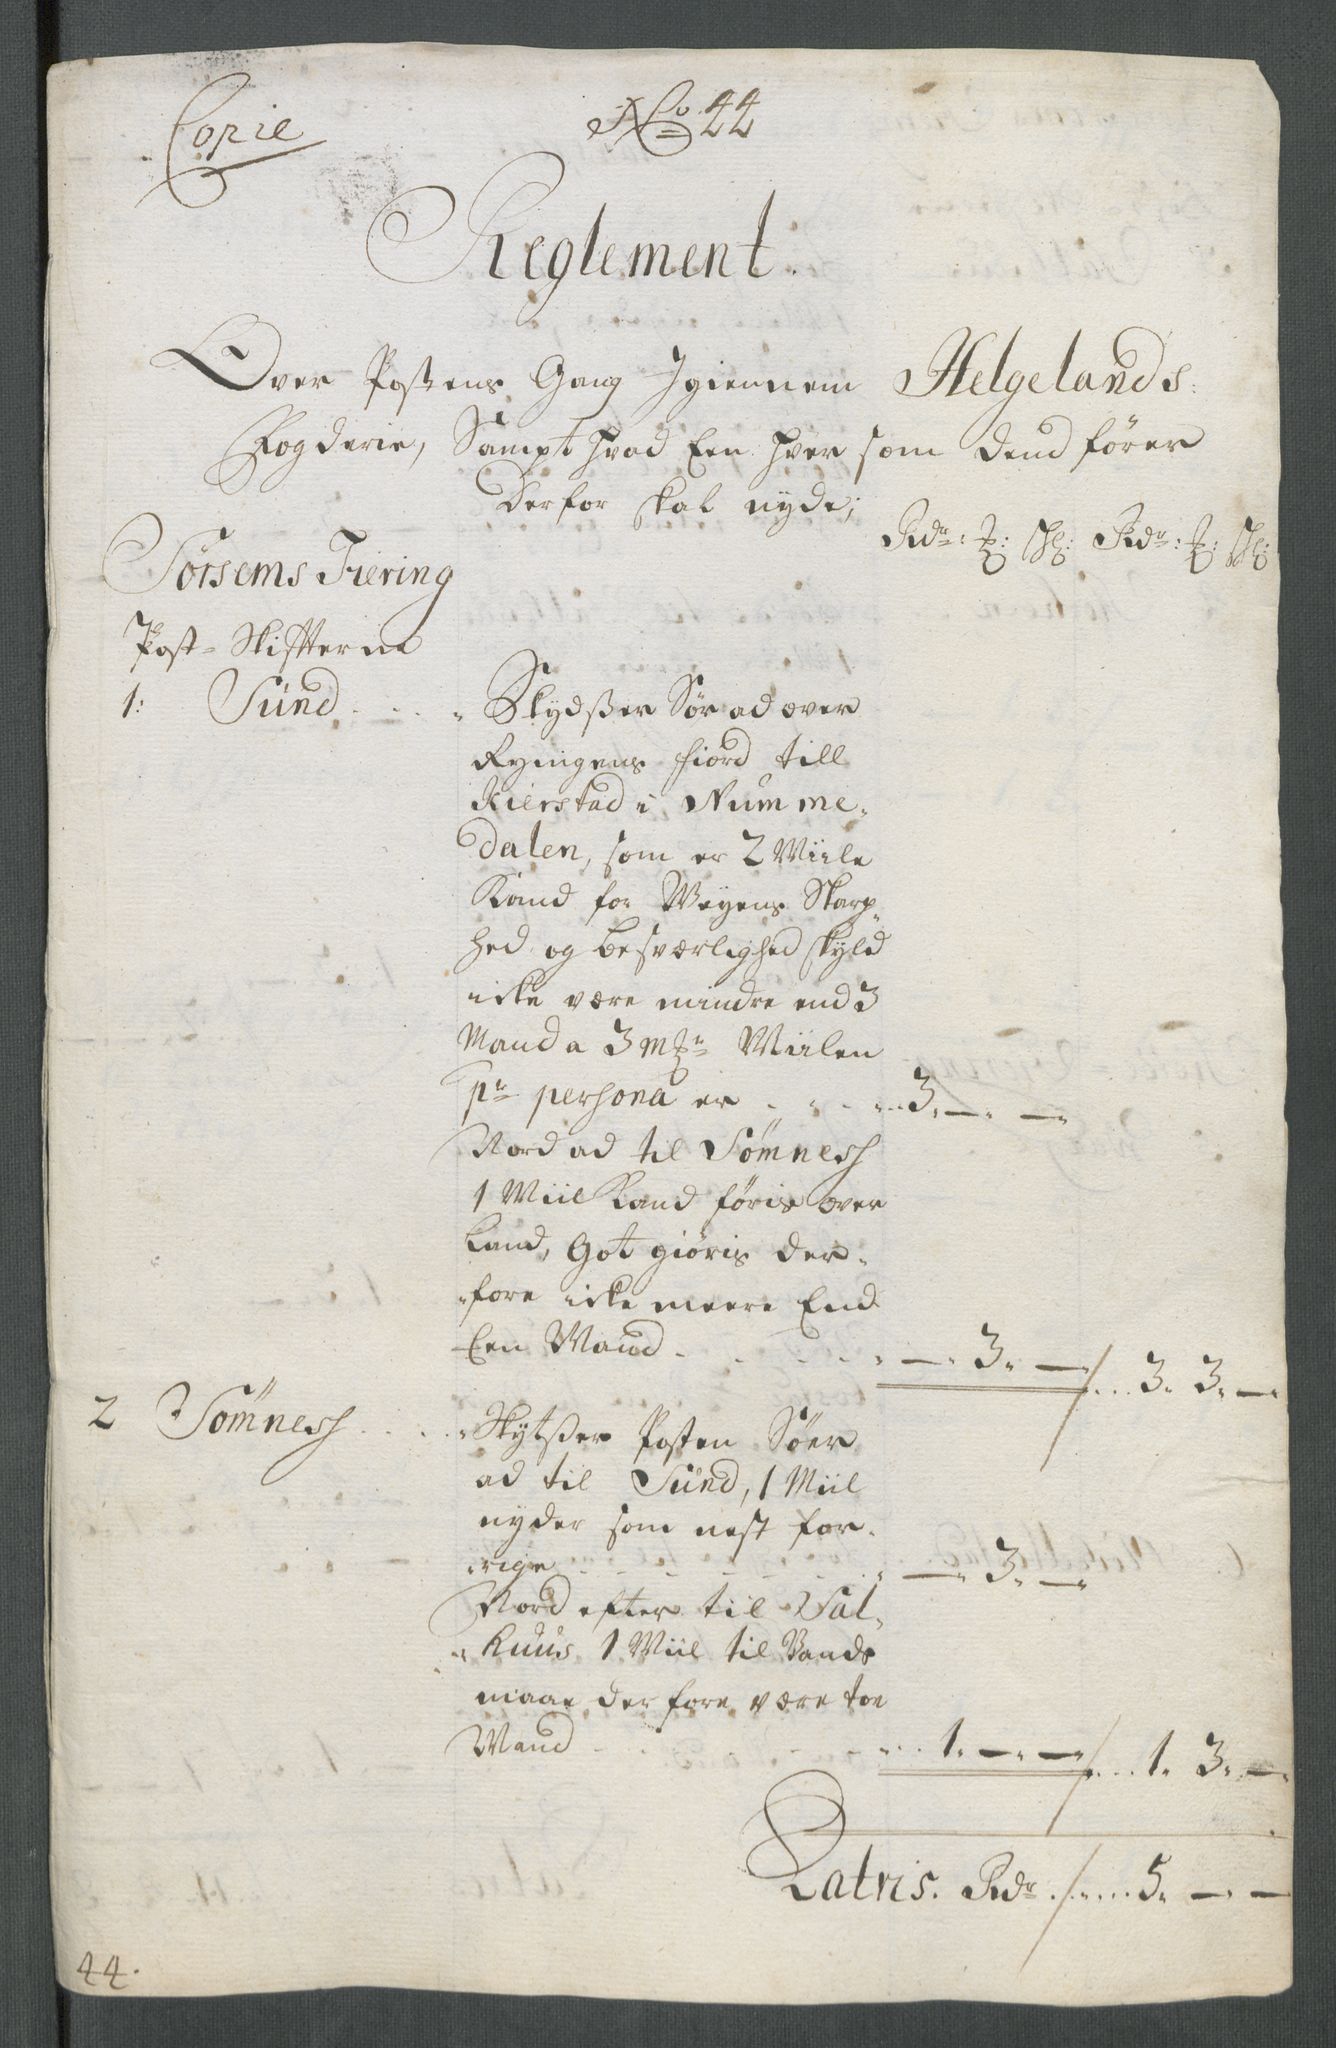 Copie
No 44
Reglement.
Over Postens Gang Igiennem Helgelands:
Fogderie, Sampt hvad Een hver som dend fører
derfor skal nyde;
Rdr: ꝣ: sh: Rdr: ꝣ: sh:
Sørsems Fiering
Post-Skifterne
1: Sund . . . Skydsser Sør ad over
Fyingens fiord till
Kierstad i Numme-
dalen, som er 2 Miile
Kand for Weyens Skarp-
hed og besværlighed skyld
icke være mindre end 3
Mand a 3 mꝣr Miilen
pr persona er . . . 3. — —
Nord ad til Sømnesh
1 Miil Kand føris over
Land, Got giøris der-
fore icke meere End
Een Mand . . . — 3. — / . . 3. 3. —
2 Sømnesh . . . Skytsser Posten Søer
ad til Sund, 1 Miil
nyder som nest for-
rige . . . — 3. —
Nord efter til Sal-
huus 1 Miil til Vands
maae derfore være toe
Mand . . . 1. — — / . . 1. 3. —
Latris. Rdr . / . . . 5. — —
44.